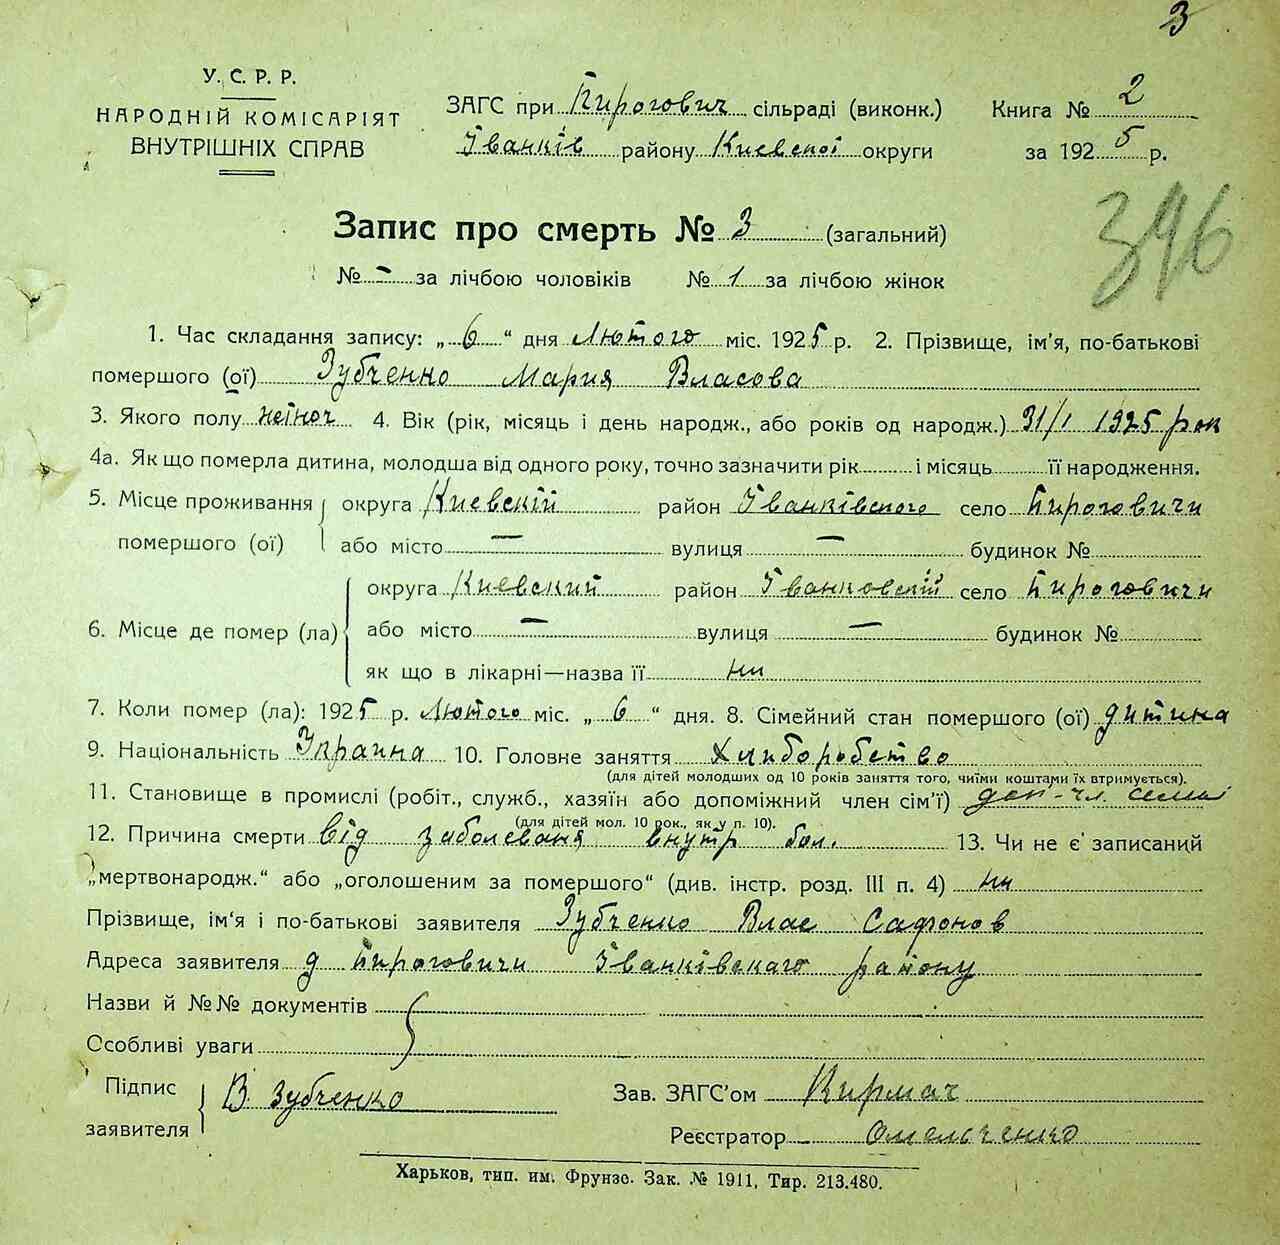 3
У. С. Р. Р.
НАРОДНІЙ КОМІСАРІЯТ
ВНУТРІШНІХ СПРАВ
ЗАГС при Пирогович сільраді (виконк.)
Іванків району Киевской округи
Книга № 2
за 1925 р.
Запис про смерть № 3 (загальний)
396
№ – за лічбою чоловіків № 1 за лічбою жінок
1. Час складання запису: „ 6 “ дня Лютого міс. 1925 р. 2. Прізвище, ім'я, по-батькові
помершого (ої) Зубченко Мария Власова
3. Якого полу жіноч 4. Вік (рік, місяць і день народж., або років од народж.) 31/1 1925 рок
4а. Як що померла дитина, молодша від одного року, точно зазначити рік і місяць її народження.
5. Місце проживання округа Киевскій район Іванківского село Пироговичи
помершого (ої) або місто — вулиця — будинок №
округа Киевский район Іванковскій село Пироговичи
6. Місце де помер (ла) або місто — вулиця — будинок №
як що в лікарні—назва її ни
7. Коли помер (ла): 1925 р. Лютого міс. „ 6 “ дня. 8. Сімейний стан помершого (ої) дитина
9. Національність Украина 10. Головне заняття Хлиборобство
(для дітей молодших од 10 років заняття того, чиїми коштами їх втримується).
11. Становище в промислі (робіт., служб., хазяїн або допоміжний член сім'ї) доп-чл. семьі
(для дітей мол. 10 рок., як у п. 10).
12. Причина смерти від заболеваня внутр бол. 13. Чи не є записаний
„мертвонародж.“ або „оголошеним за помершого“ (див. інстр. розд. III п. 4) ни
Прізвище, ім'я і по-батькові заявителя Зубченко Влас Сафонов
Адреса заявителя д Пироговичи Іванківскаго району
Назви й №№ документів
Особливі уваги
Підпис заявителя В. Зубченко
Зав. ЗАГС'ом Кирмач
Реєстратор Омельченко
Харьков, тип. им. Фрунзе. Зак. № 1911, Тир. 213.480.